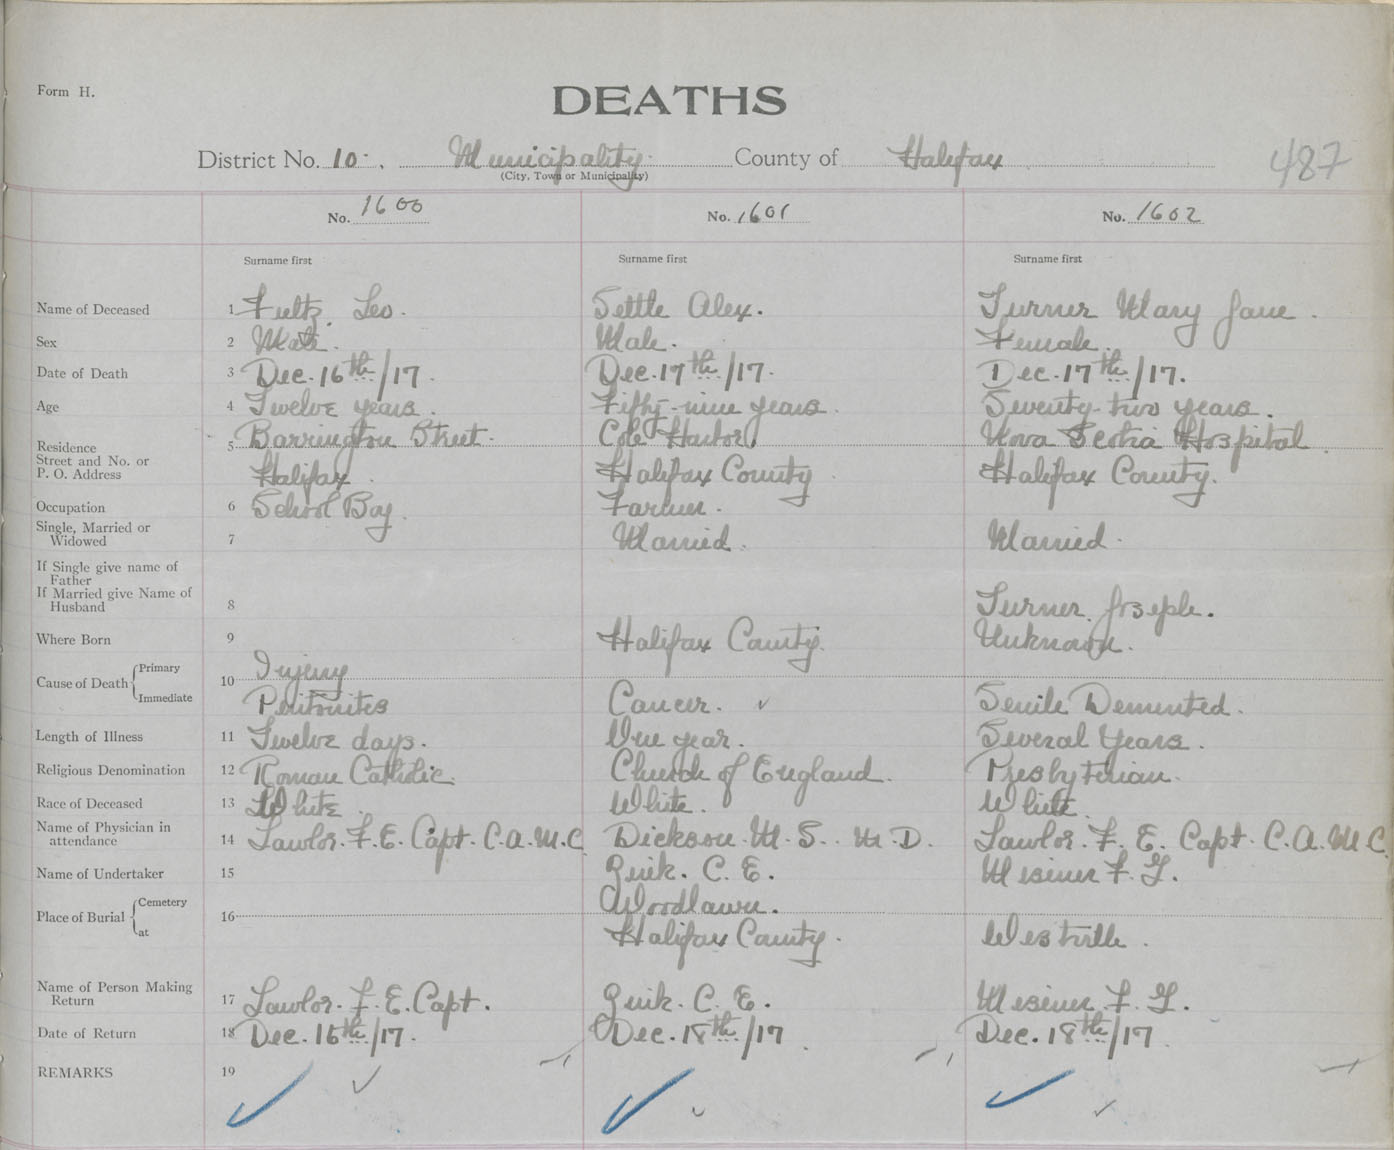 Form H.
DEATHS
District No. 10. Municipality County of Halifax 487
(City, Town or Municipality)
No. 1600 No. 1601 No. 1602
Surname first Surname first Surname first
Name of Deceased 1 Fultz Leo. Settle Alex. Turner Mary Jane.
Sex 2 Male. Male. Female.
Date of Death 3 Dec. 16th/17. Dec. 17th/17. Dec. 17th/17.
Age 4 Twelve years. Fifty-nine years. Seventy-two years.
Residence 5 Barrington Street. Cole Harbor, Nova Scotia Hospital
Street and No. or
P. O. Address Halifax. Halifax County Halifax County.
Occupation 6 School Boy. Farmer.
Single, Married or
Widowed 7 Married. Married.
If Single give name of
Father
If Married give Name of
Husband 8 Turner Joseph.
Where Born 9 Halifax County. Unknown.
Cause of Death Primary 10 Injury
Immediate Peritonites Cancer. Senile Demented.
Length of Illness 11 Twelve days. One year. Several Years.
Religious Denomination 12 Roman Catholic. Church of England. Presbyterian.
Race of Deceased 13 White. White. White.
Name of Physician in
attendance 14 Lawlor. F. E. Capt. C.A.M.C Dickson. M. S. M. D. Lawlor. F. E. Capt. C.A.M.C.
Name of Undertaker 15 C. E. F. G.
Place of Burial Cemetery 16 Woodlawn.
at Halifax County. Westville.
Name of Person Making
Return 17 Lawlor. F. E. Capt. C. E. F. G.
Date of Return 18 Dec. 16th/17. Dec. 18th/17 Dec. 18th/17
REMARKS 19